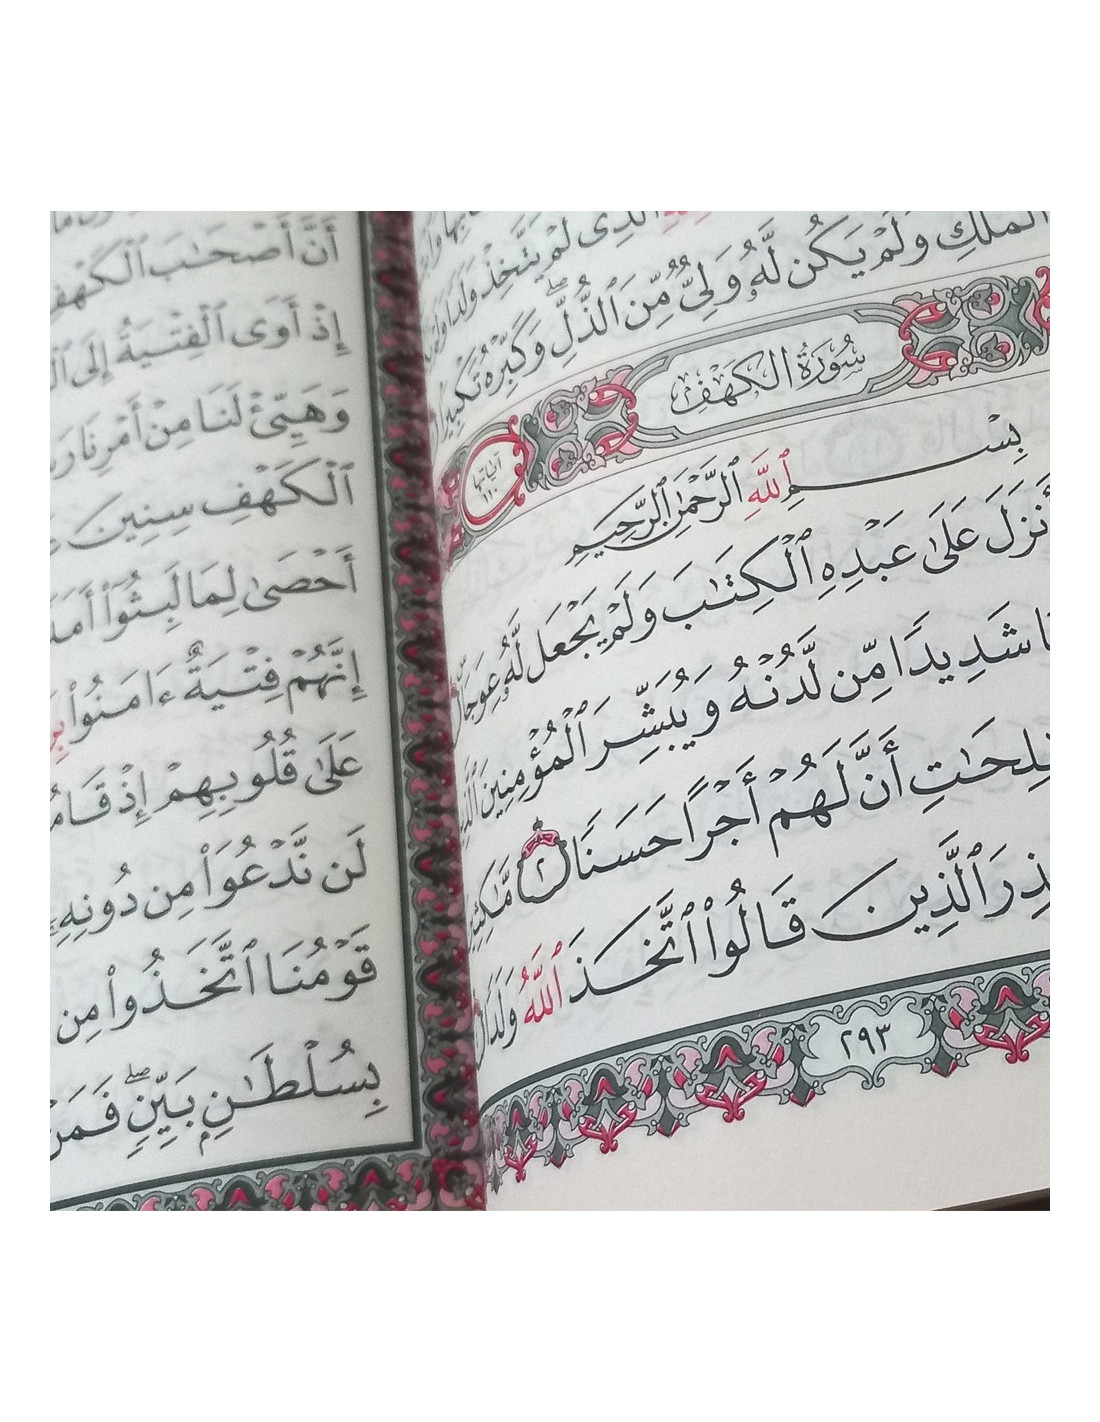 ٱلَّذِى لَمْ يَتَّخِذْ وَلَدًا
ٱلْمُلْكِ وَلَمْ يَكُن لَّهُۥ وَلِىٌّ مِّنَ ٱلذُّلِّ ۖ وَكَبِّرْهُ تَكْبِيرًۢا
سُورَةُ الكَهْفِ
آياتها ١١٠
بِسْمِ ٱللَّهِ ٱلرَّحْمَٰنِ ٱلرَّحِيمِ
أَنزَلَ عَلَىٰ عَبْدِهِ ٱلْكِتَٰبَ وَلَمْ يَجْعَل لَّهُۥ عِوَجَا
شَدِيدًا مِّن لَّدُنْهُ وَيُبَشِّرَ ٱلْمُؤْمِنِينَ
أَنَّ لَهُمْ أَجْرًا حَسَنًا ٢ مَّٰكِثِينَ
ٱلَّذِينَ قَالُوا۟ ٱتَّخَذَ ٱللَّهُ وَلَدًا
٢٩٣
أَنَّ أَصْحَٰبَ ٱلْكَهْفِ
إِذْ أَوَى ٱلْفِتْيَةُ إِلَى
وَهَيِّئْ لَنَا مِنْ أَمْرِنَا
ٱلْكَهْفِ سِنِينَ
أَحْصَىٰ لِمَا لَبِثُوٓا۟
إِنَّهُمْ فِتْيَةٌ ءَامَنُوا۟
عَلَىٰ قُلُوبِهِمْ إِذْ
لَن نَّدْعُوَا۟ مِن دُونِهِۦٓ
قَوْمُنَا ٱتَّخَذُوا۟ مِن
بِسُلْطَٰنٍۭ بَيِّنٍ ۖ فَمَنْ